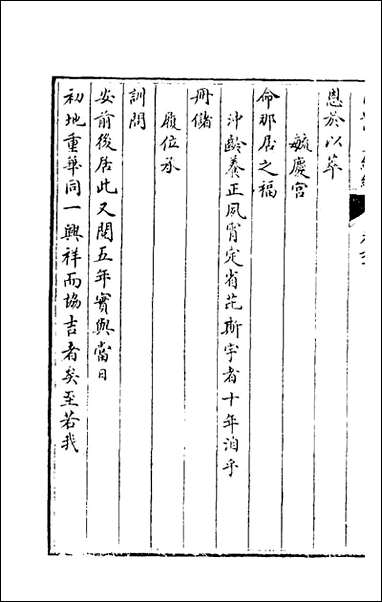 恩於以萃
毓慶宮
命那居之福
沖齡養正夙宵定省芘斯宇者十年洎乎
冊儲
履位承
訓問
安前後居此又閱五年實與當日
初地重華同一興祥而協吉者矣至若我